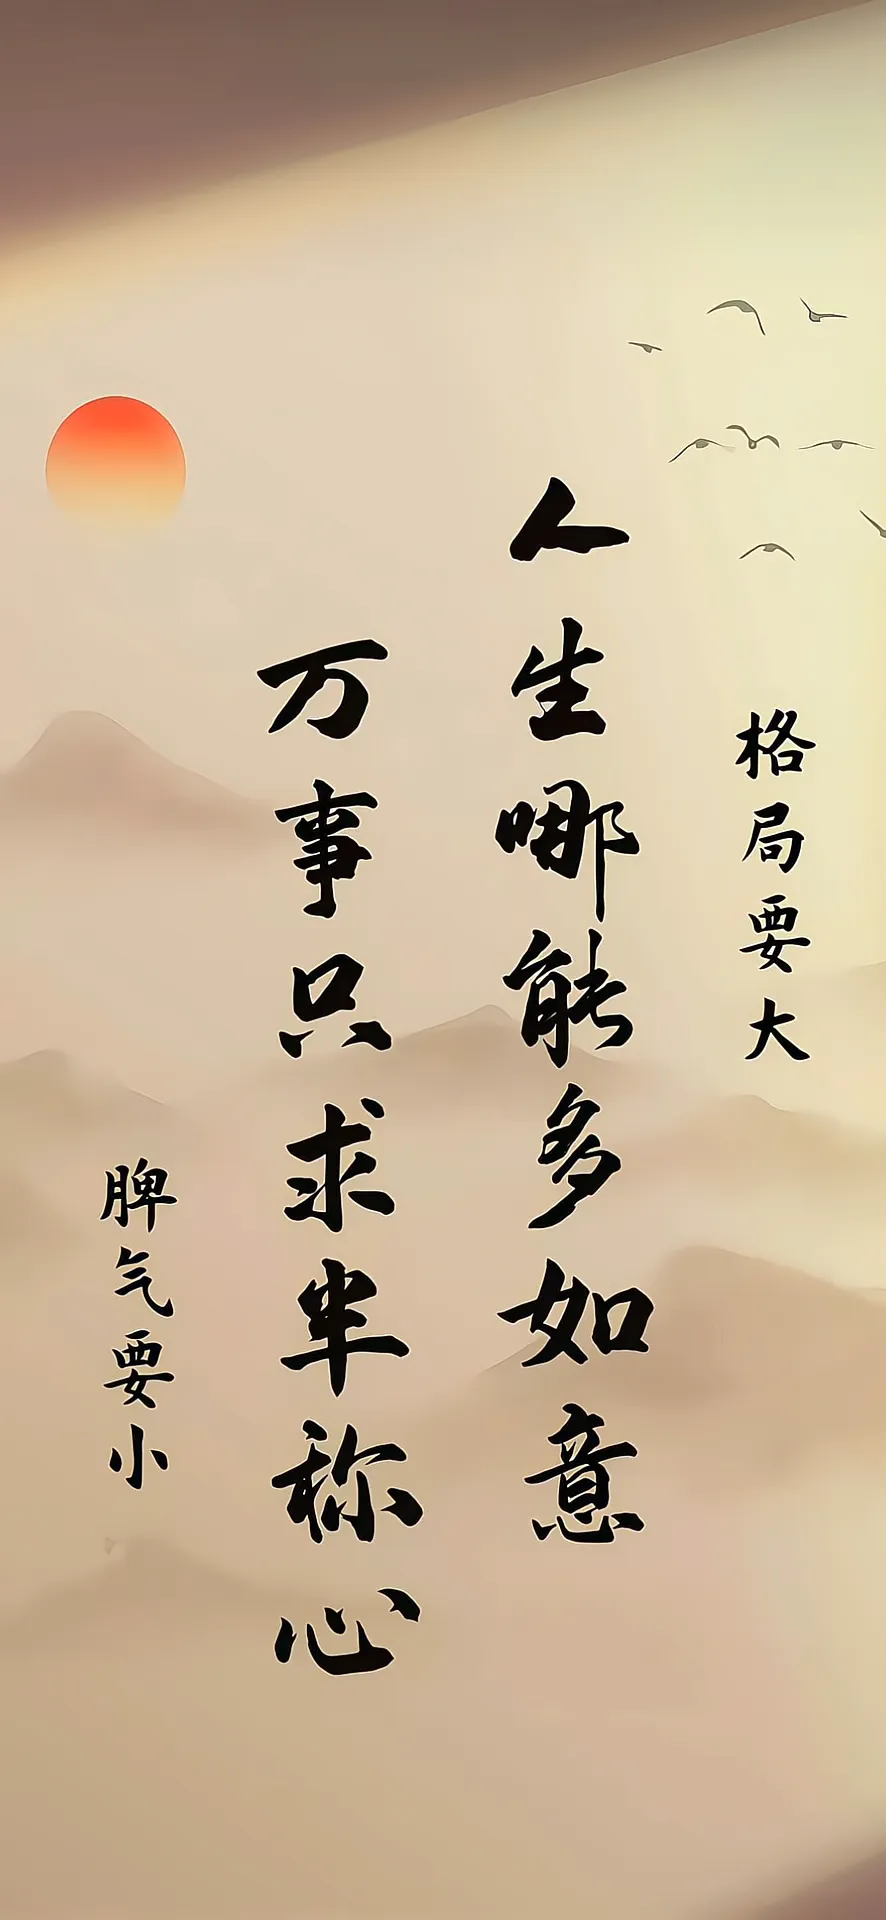 格局要大
人生哪能多如意
万事只求半称心
脾气要小